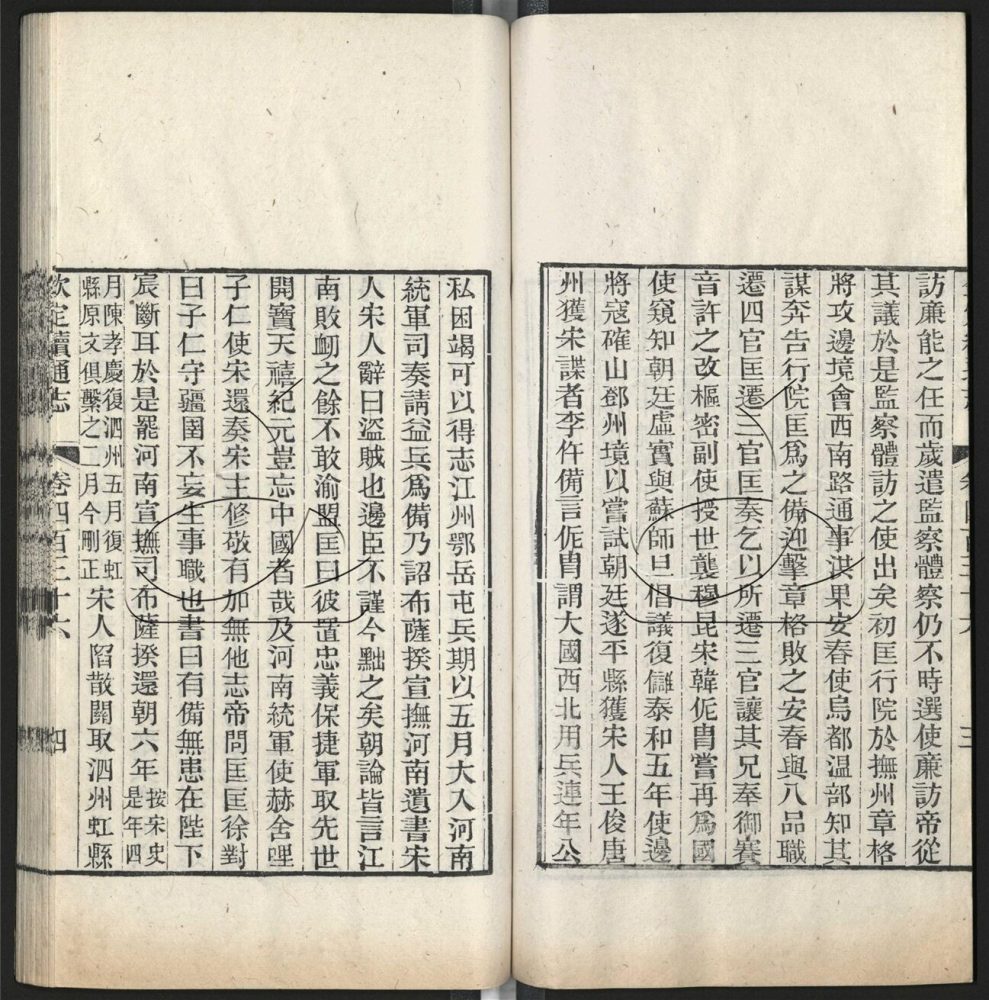 訪廉能之任而歲遣監察體察仍不時選使廉訪帝從
其議於是監察體訪之使出矣初匡行院於撫州章格
將攻邊境會西南路通事洪果安春使烏都温部知其
謀奔告行院匡爲之備迎擊章格敗之安春與八品職
遷四官匡遷三官匡奏乞以所遷三官讓其兄奉御賽
音許之改樞密副使授世襲穆昆宋韓侂胄嘗再爲國
使窺知朝廷虛實與蘇師旦倡議復讎泰和五年使邊
將寇確山鄧州境以嘗試朝廷遂平縣獲宋人王俊唐
州獲宋諜者李忤備言侂胄謂大國西北用兵連年公
私困竭可以得志江州鄂岳屯兵期以五月大入河南
統軍司奏請益兵爲備乃詔布薩揆宣撫河南遺書宋
人宋人辭曰盜賊也邊臣不謹今黜之矣朝論皆言江
南敗衂之餘不敢渝盟匡曰彼置忠義保捷軍取先世
開寶天禧紀元豈忘中國者哉及河南統軍使赫舍哩
子仁使宋還奏宋主修敬有加無他志帝問匡匡徐對
曰子仁守疆圉不妄生事職也書曰有備無患在陛下
宸斷耳於是罷河南宣撫司布薩揆還朝六年按宋史是年四
月陳孝慶復泗州五月復虹縣原文俱繫之二月今刪正宋人陷散關取泗州虹縣
欽定續通志 卷四百三十六 四